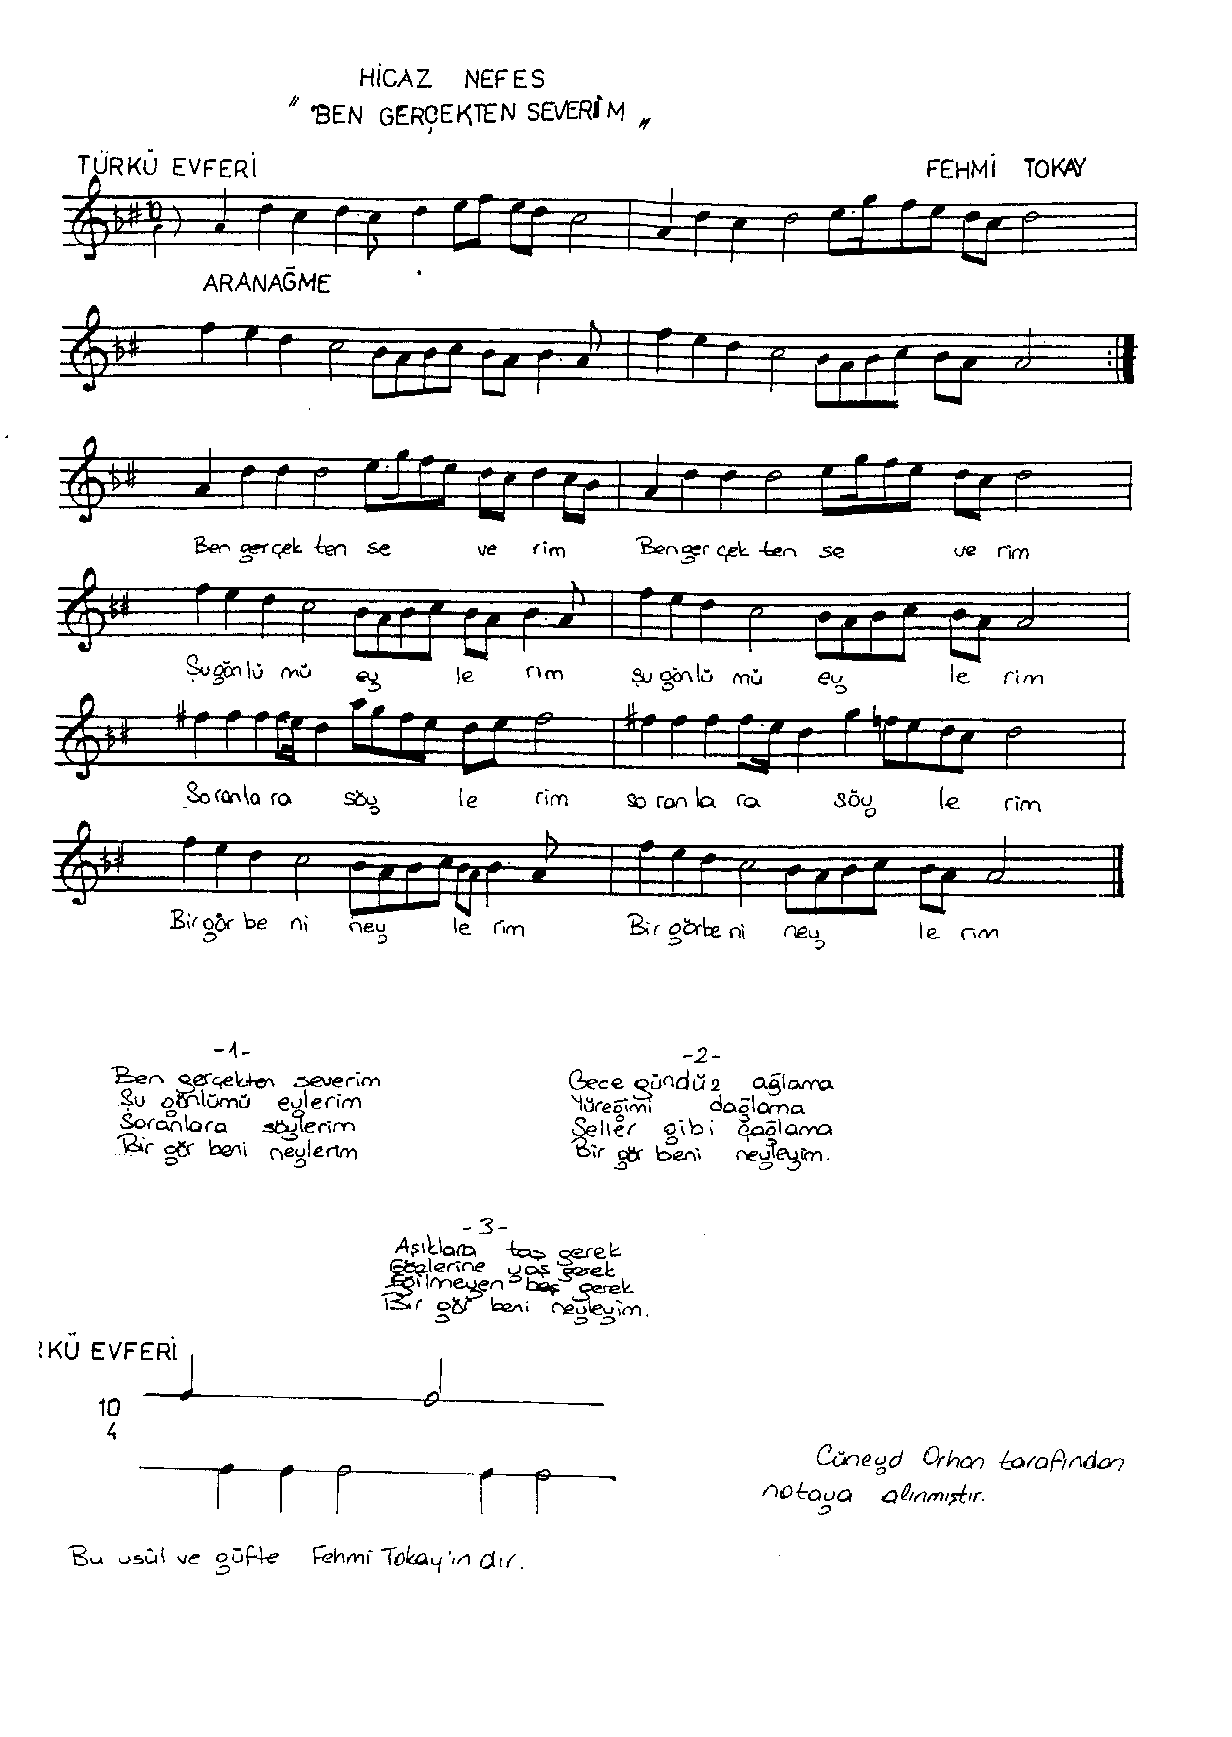 HİCAZ NEFES
" BEN GERÇEKTEN SEVERİM "
TÜRKÜ EVFERİ
FEHMİ TOKAY
10
ARANAĞME
Ben ger çek ten se ve rim Ben ger çek ten se ve rim
Şu gön lü mü ey le rim Şu gön lü mü ey le rim
So ran la ra söy le rim so ran la ra söy le rim
Bir gör be ni ney le rim Bir gör be ni ney le rim
-1-
Ben gerçekten severim
Şu gönlümü eylerim
Soranlara söylerim
Bir gör beni neylerim
-2-
Gece gündüz ağlama
Yüreğimi dağlama
Seller gibi çağlama
Bir gör beni neyleyim.
-3-
Aşıklara taş gerek
Gözlerine yaş gerek
Eğilmeyen baş gerek
Bir gör beni neyleyim.
KÜ EVFERİ
10
4
Cüneyd Orhon tarafından
notaya alınmıştır.
Bu usûl ve güfte Fehmi Tokay'ın dır.